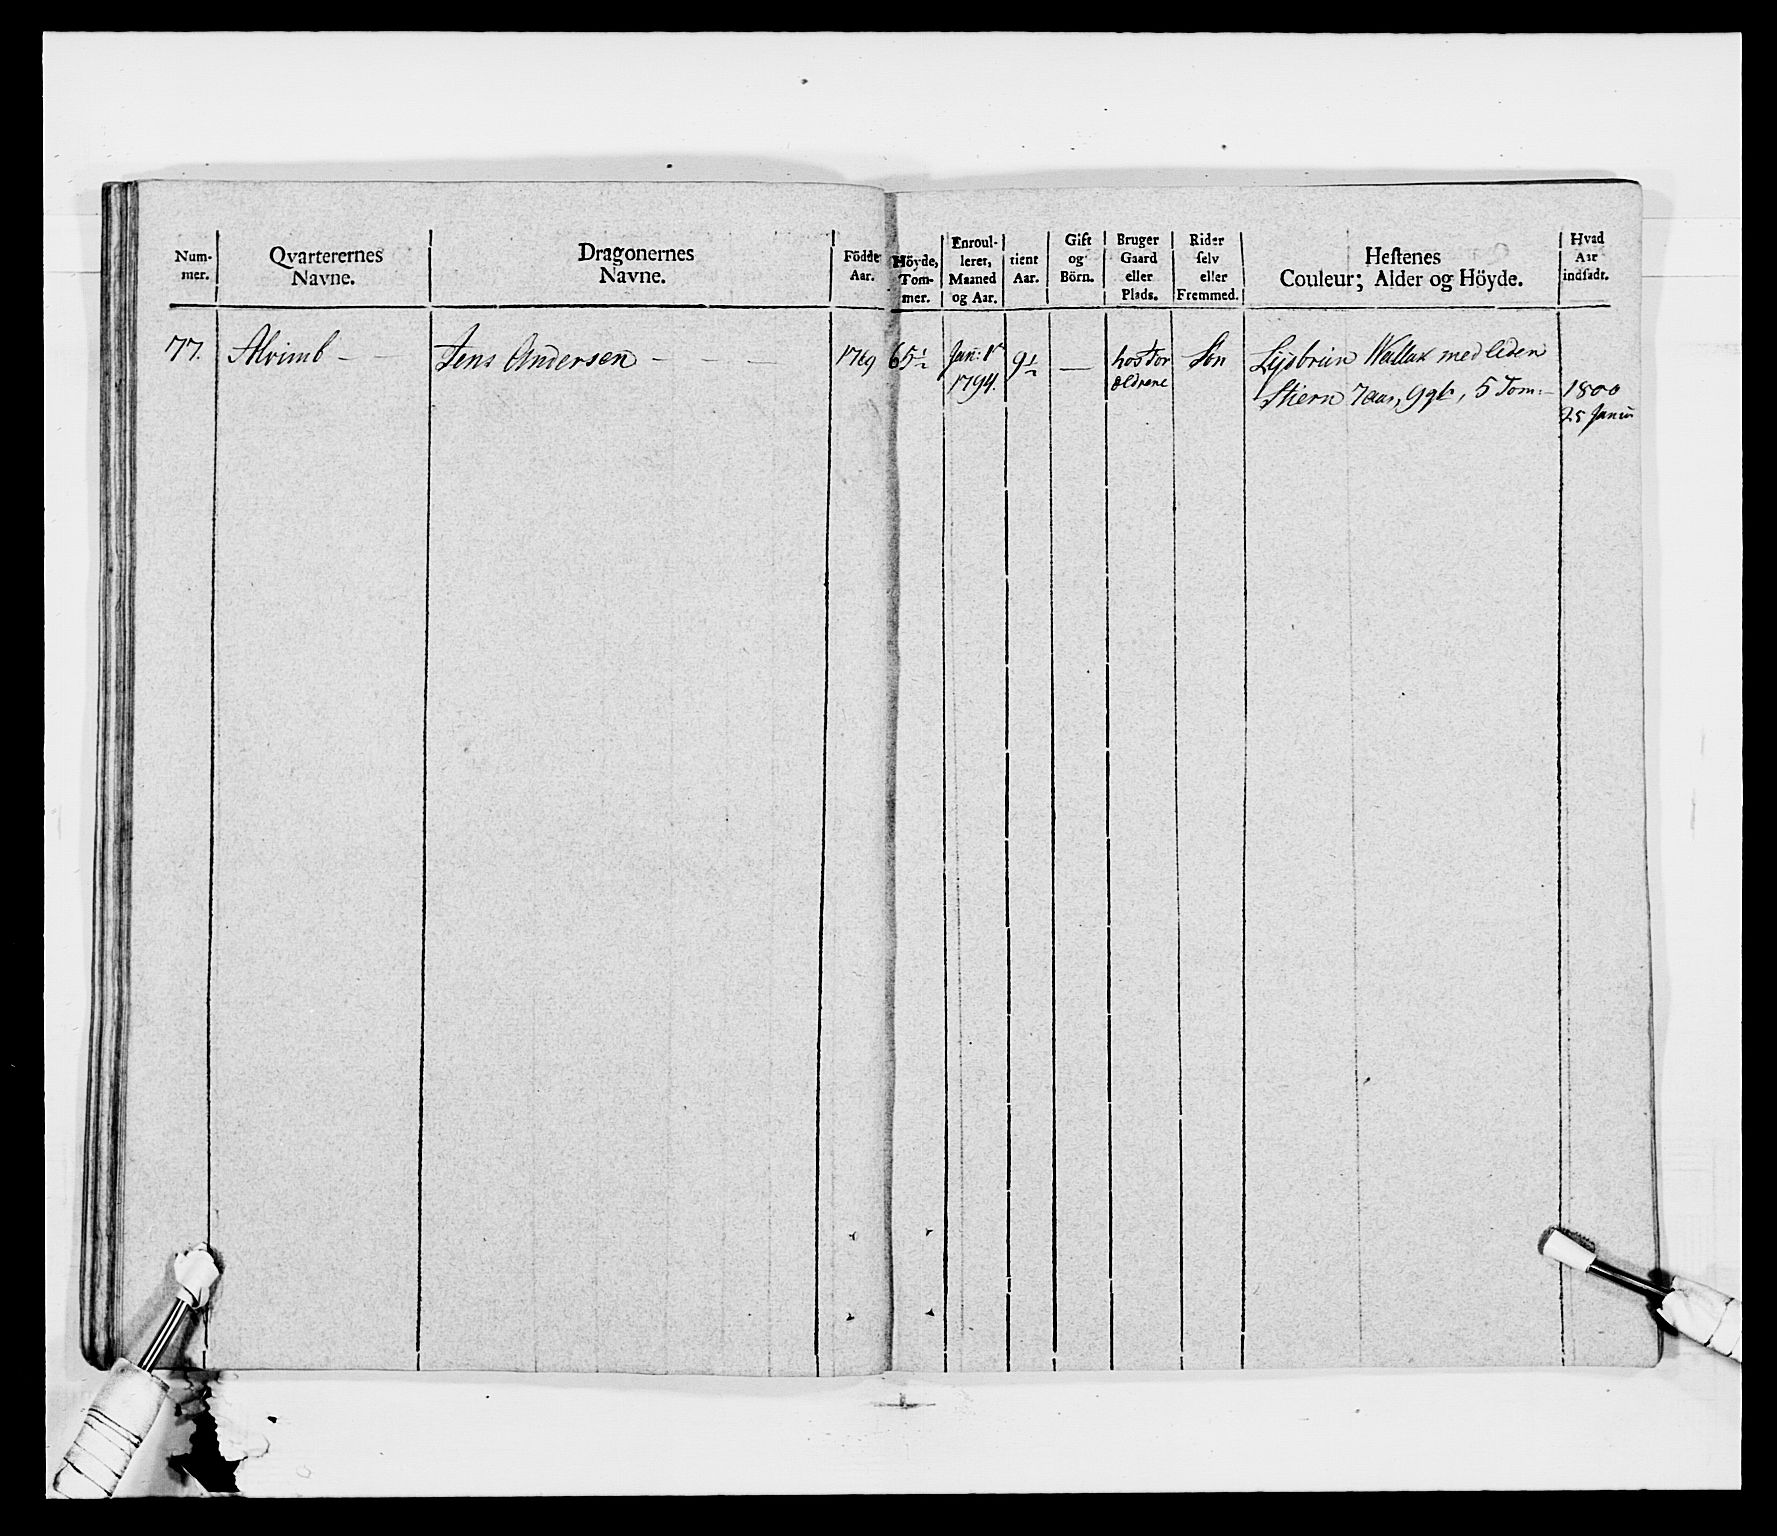 Num-
mer.
Qvarterernes
Navne.
Dragonernes
Navne.
Födde
Aar.
Höyde,
Tom-
mer.
Enroul-
leret,
Maaned
og Aar.
tient
Aar.
Gift
og
Börn.
Bruger
Gaard
eller
Plads.
Rider
selv
eller
Fremmed.
Hestenes
Couleur; Alder og Höyde.
Hvad
Aar
indsadt.
77. Alvimb — — Jens Andersen — — — — 1769 65½ Jan: 1ª 9½ — hos For Søn Lysbrun Wallak med liden
1794. Ældrene Stiern 7 aar, 9 qt, 5 Tom:— 1800
25 Junii